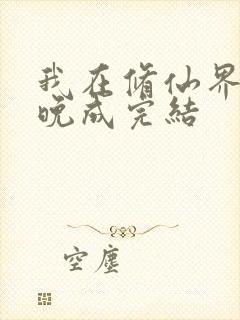 我在脩仙界
晚成完結
空塵